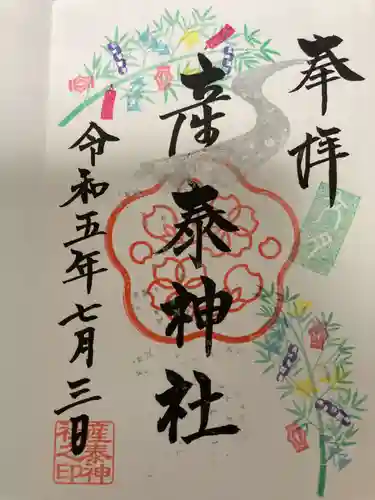 奉拝
産泰神社
令和五年七月三日
産泰神
社之印